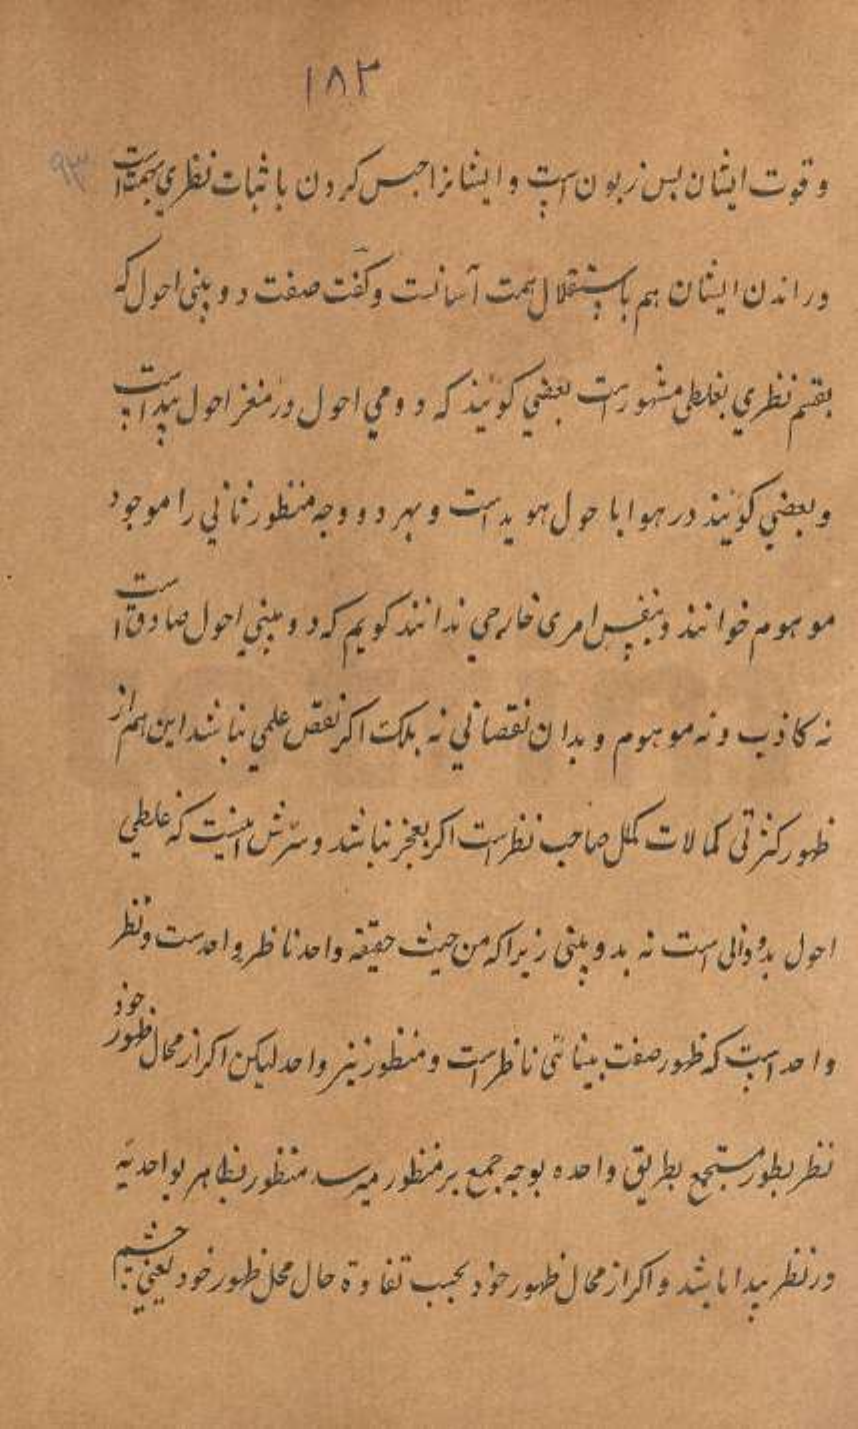 ۱۸۳
۹۳
و قوت ایشان بس زبون است و ایشانرا حبس کردن با ثبات نظری بهمت است
و راندن ایشان هم باستقلال همت آسانست و گفت صفت دو بینی احول که
بقسم نظری بغلطی مشهور است بعضی کویند که دومی احول در مغز احول پیدا است
و بعضی کویند در هوا با حول هویداست و بهر دو وجه منظور ثانی را موجود
موهوم خوانند و بنفس امری خارجی ندانند کویم که دو بینی احول صادق است
نه کاذب و نه موهوم و بدان نقصانی نه بلکه اکر نقص علمی نباشد این هم از
ظهور کثرتی کمالات کمل صاحب نظر است اکر بعجز نباشد و سرّش اینست که غلطی
احول بدو دالی است نه بدو بینی زیرا که من حیث حقیقه واحد ناظر واحدست و نظر
واحد است که ظهور صفت بینائی ناظر است و منظور نیز واحد لیکن اکر از محال ظهور خود
نظر بطور مستجمع بطریق واحده بوجه جمع بر منظور میرسد منظور بظاهر بواحدیه
در نظر پیدا باشد و اکر از محال ظهور خود بحسب تفاوة حال محل ظهور خود یعنی چشم